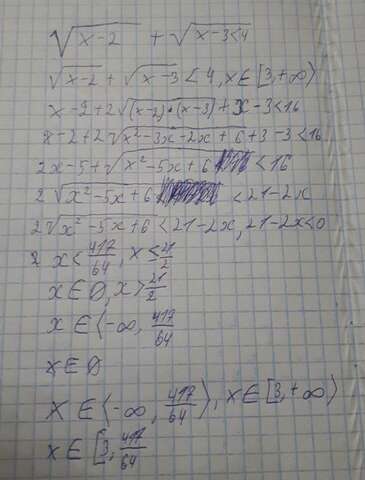 √x-2 + √x-3<4
√x-2 + √x-3 < 4, x∈[3,+∞)
x-2+2√(x-2)·(x-3) + x-3<16
x-2+2√x²-3x-2x+6+3-3<16
2x-5+√x²-5x+6 <16
2√x²-5x+6 <21-2x
2√x²-5x+6 <21-2x, 21-2x<0
2 x< 417/64, x≤ 21/2
x∈∅, x> 21/2
x∈⟨-∞, 417/64
x∈∅
x∈⟨-∞, 417/64⟩, x∈[3,+∞)
x∈[3, 417/64